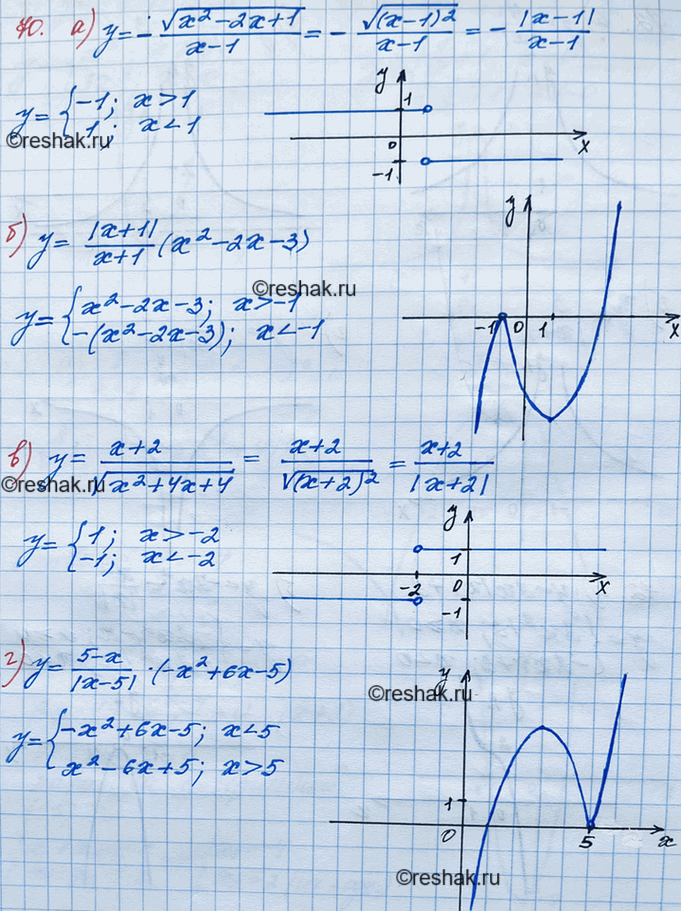 70. а) y = -√(x²-2x+1)/(x-1) = -√((x-1)²)/(x-1) = -|x-1|/(x-1)
y = { -1; x>1
1; x<1
©reshak.ru
y
1
0
x
-1
б) y = |x+1|/(x+1) (x²-2x-3)
©reshak.ru
y = { x²-2x-3; x>-1
-(x²-2x-3); x<-1
y
-1 0 1
x
в) y = (x+2)/√(x²+4x+4) = (x+2)/√((x+2)²) = (x+2)/|x+2|
©reshak.ru
y = { 1; x>-2
-1; x<-2
y
1
-2 0
x
-1
г) y = (5-x)/|x-5| · (-x²+6x-5)
©reshak.ru
y = { -x²+6x-5; x<5
x²-6x+5; x>5
y
1
0 5 x
©reshak.ru